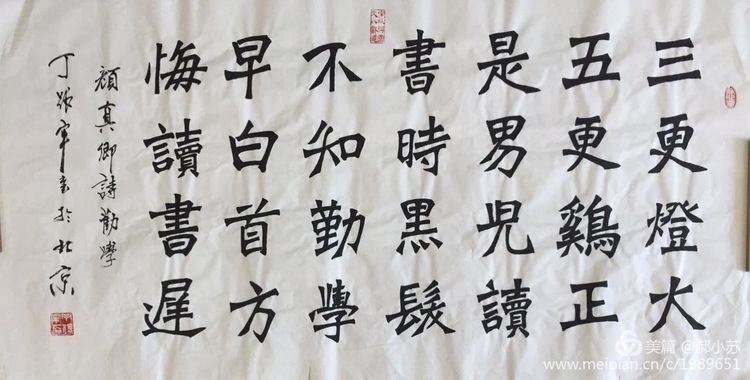 三更燈大
五更鷄正
是男兒讀
書時黑髮
不知勤學
早白首方
悔讀書遲
顏真卿詩勸學
丁 書於北京
美篇 @郝小苏
www.meipian.cn/c/1989651